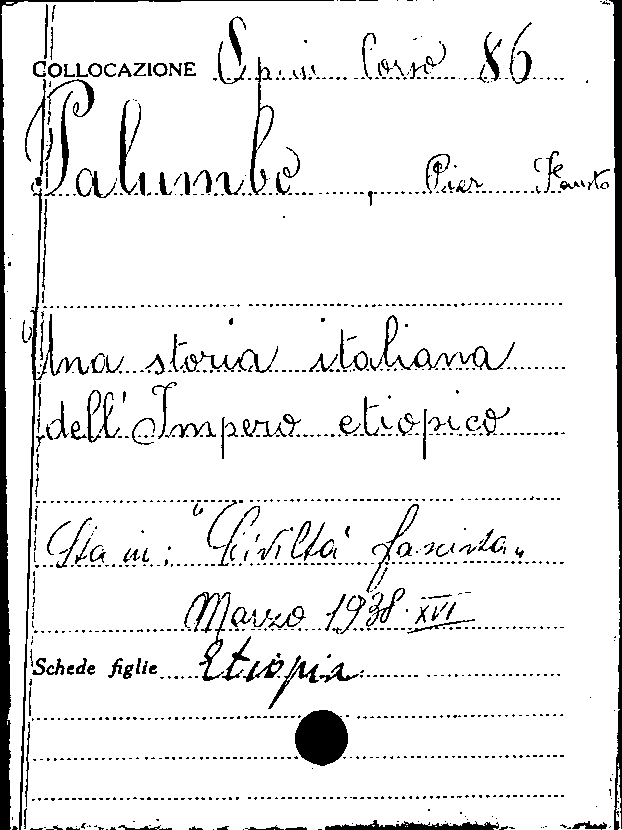 COLLOCAZIONE Opusc. Corso 86
Palumbo, Pier Fausto
Una storia italiana
dell'Impero etiopico
Sta in: "Civiltà fascista"
Marzo 1938. XVI
Schede figlie Etiopia